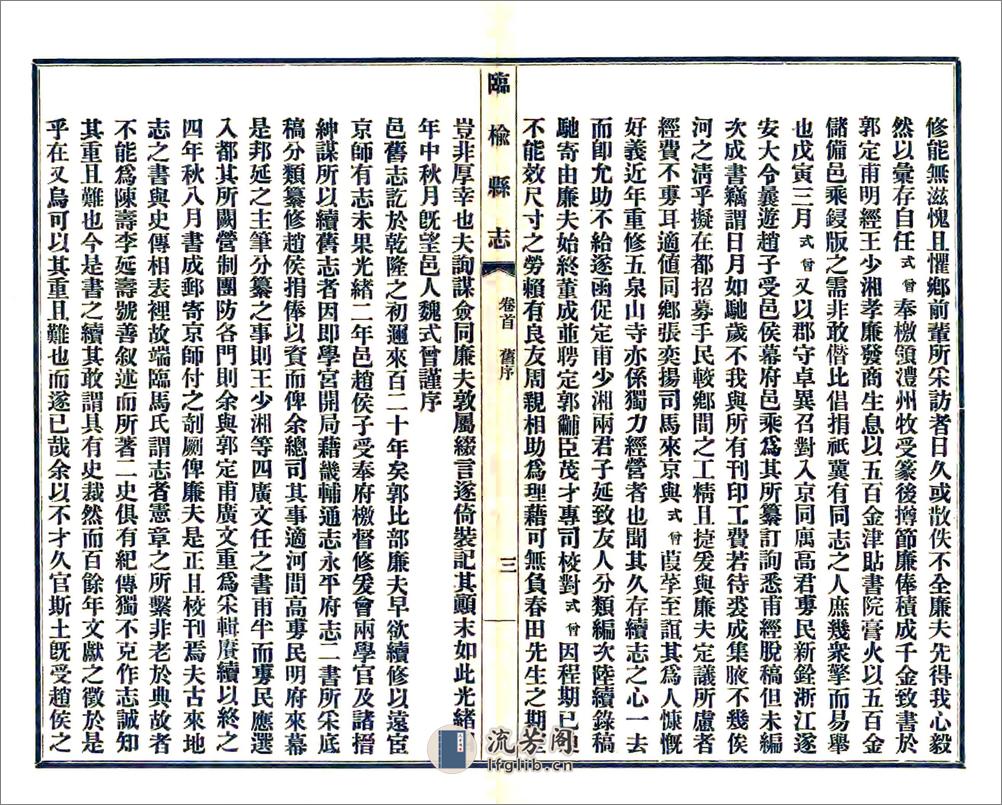 修能無滋愧且懼鄉前輩所采訪者日久或散佚不全廉夫先得我心毅
然以彙存自任式曾奉檄領澧州牧受篆後撙節廉俸積成千金致書於
郭定甫明經王少湘孝廉發商生息以五百金津貼書院膏火以五百金
儲備邑乘鋟版之需非敢偕比倡捐祇冀有同志之人庶幾衆擎而易舉
也戊寅三月式曾又以郡守卓異召對入京同寓高君勇民新銓浙江遂
安大令曩遊趙子受邑侯幕府邑乘爲其所纂訂詢悉甫經脫稿但未編
次成書竊謂日月如馳歲不我與所有刊印工費若待裘成集腋不幾俟
河之清乎擬在都招募手民較鄉間之工精且捷爰與廉夫定議所慮者
經費不專耳適値同鄉張奕揚司馬來京與式曾葭莩至誼其爲人慷慨
好義近年重修五泉山寺亦係獨力經營者也聞其久存續志之心一去
而卽允助不給遂函促定甫少湘兩君子延致友人分類編次陸續錄稿
馳寄由廉夫始終董成並聘定郭黼臣茂才專司校對式曾因程期已迫
不能效尺寸之勞賴有良友周親相助爲理藉可無負春田先生之期
豈非厚幸也夫詢謀僉同廉夫敦屬綴言遂倚裝記其顚末如此光緒
年中秋月旣望邑人魏式曾謹序
邑舊志訖於乾隆之初邇來百二十年矣郭比部廉夫早欲續修以遠宦
京師有志未果光緒二年邑趙侯子受奉府檄督修爰會兩學官及諸搢
紳謀所以續舊志者因卽學宮開局藉畿輔通志永平府志二書所采底
稿分類纂修趙侯捐俸以資而俾余總司其事適河間高勇民明府來幕
是邦延之主筆分纂之事則王少湘等四廣文任之書甫半而勇民應選
入都其所闕營制團防各門則余與郭定甫廣文重爲采輯賡續以終之
四年秋八月書成郵寄京師付之剞劂俾廉夫是正且校刊焉夫古來地
志之書與史傳相表裡故端臨馬氏謂志者憲章之所繫非老於典故者
不能爲陳壽李延壽號善叙述而所著二史俱有紀傳獨不克作志誠知
其重且難也今是書之續其敢謂具有史裁然而百餘年文獻之徵於是
乎在又烏可以其重且難也而遂已哉余以不才久官斯土旣受趙侯之
臨榆縣志
卷首 舊序
三
流芳閣
lfglib.cn